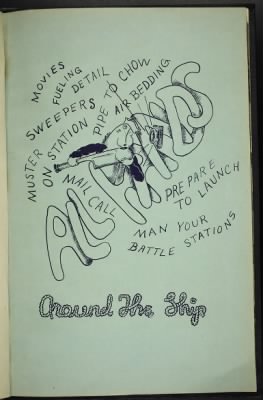 MOVIES
FUELING
DETAIL
SWEEPERS
PIPE TO CHOW
AIR BEDDING
MUSTER
ON STATION
MAIL CALL
PREPARE
TO LAUNCH
MAN YOUR
BATTLE STATIONS
Around The Ship